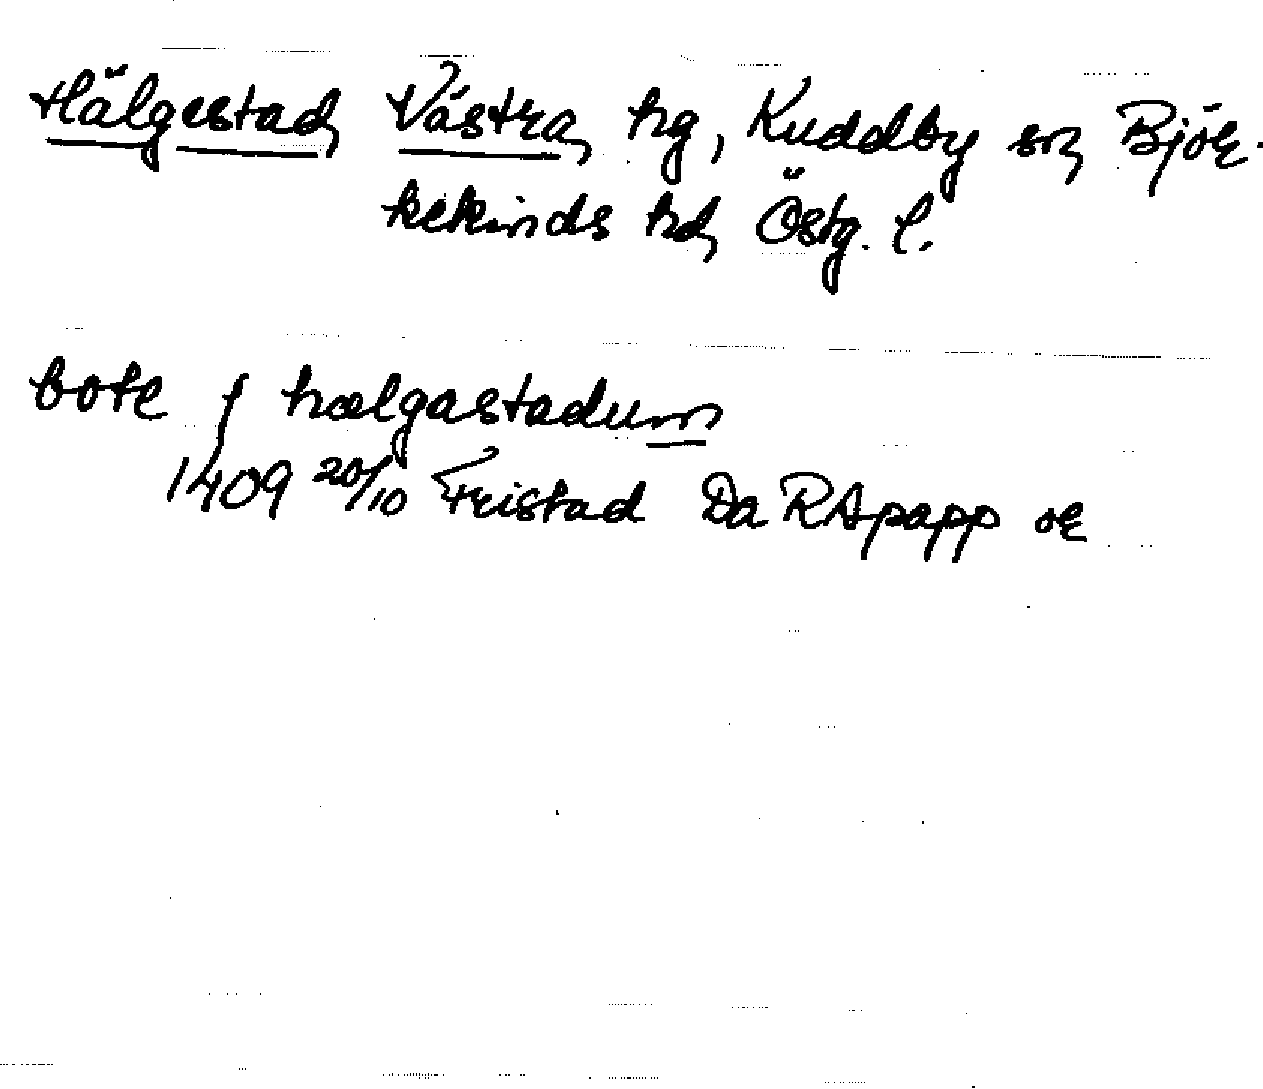 Hälgestad, Västra, hg, Kuddby sn, Björ-
kekinds hd, Östg. l.
bole j hælgastadum
1409 20/10 Fristad Da RApapp or